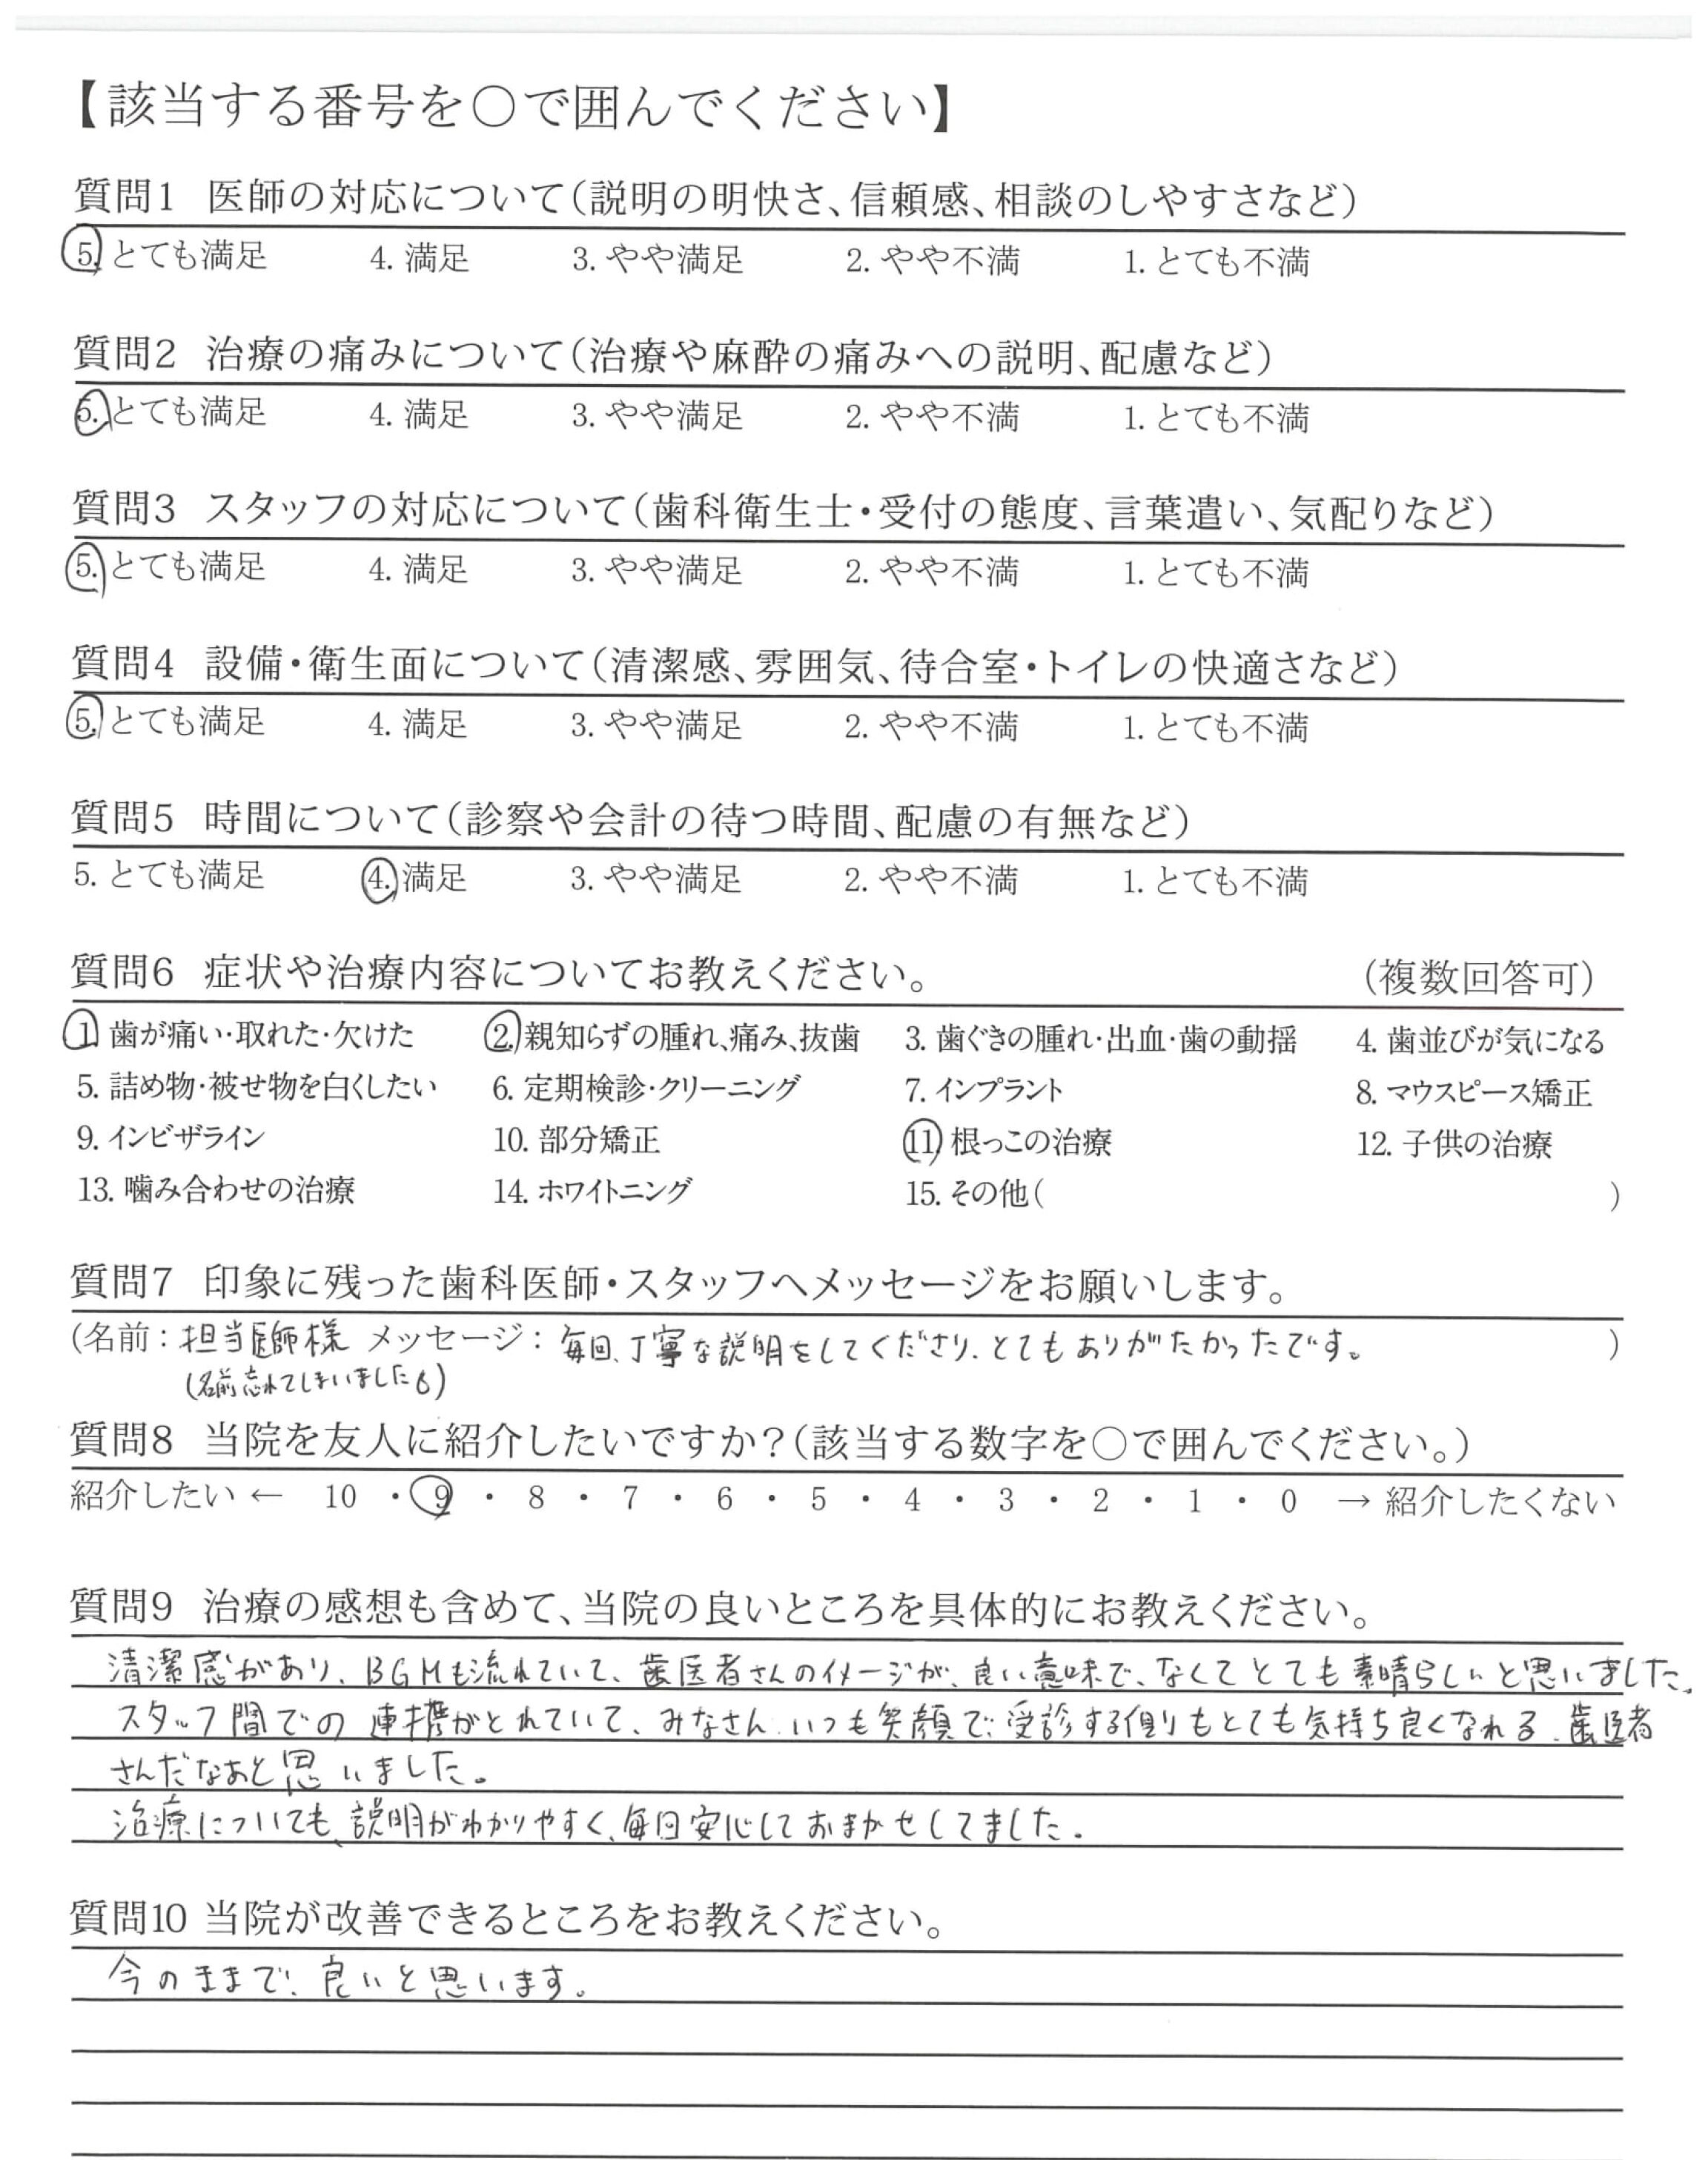 【該当する番号を○で囲んでください】
質問1 医師の対応について(説明の明快さ、信頼感、相談のしやすさなど)
5. とても満足 4. 満足 3. やや満足 2. やや不満 1. とても不満
質問2 治療の痛みについて(治療や麻酔の痛みへの説明、配慮など)
5. とても満足 4. 満足 3. やや満足 2. やや不満 1. とても不満
質問3 スタッフの対応について(歯科衛生士・受付の態度、言葉遣い、気配りなど)
5. とても満足 4. 満足 3. やや満足 2. やや不満 1. とても不満
質問4 設備・衛生面について(清潔感、雰囲気、待合室・トイレの快適さなど)
5. とても満足 4. 満足 3. やや満足 2. やや不満 1. とても不満
質問5 時間について(診察や会計の待つ時間、配慮の有無など)
5. とても満足 4. 満足 3. やや満足 2. やや不満 1. とても不満
質問6 症状や治療内容についてお教えください。 (複数回答可)
1. 歯が痛い・取れた・欠けた 2. 親知らずの腫れ、痛み、抜歯 3. 歯ぐきの腫れ・出血・歯の動揺 4. 歯並びが気になる
5. 詰め物・被せ物を白くしたい 6. 定期検診・クリーニング 7. インプラント 8. マウスピース矯正
9. インビザライン 10. 部分矯正 11. 根っこの治療 12. 子供の治療
13. 噛み合わせの治療 14. ホワイトニング 15. その他( )
質問7 印象に残った歯科医師・スタッフへメッセージをお願いします。
(名前:担当医師様 メッセージ:毎回、丁寧な説明をしてくださり、とてもありがたかったです。 )
(名前忘れてしまいました)
質問8 当院を友人に紹介したいですか?(該当する数字を○で囲んでください。)
紹介したい ← 10 ・ 9 ・ 8 ・ 7 ・ 6 ・ 5 ・ 4 ・ 3 ・ 2 ・ 1 ・ 0 → 紹介したくない
質問9 治療の感想も含めて、当院の良いところを具体的にお教えください。
清潔感があり、BGMも流れていて、歯医者さんのイメージが、良い意味で、なくてとても素晴らしいと思いました。
スタッフ間での連携がとれていて、みなさんいつも笑顔で、受診する側もとても気持ち良くなれる、歯医者
さんだなぁと思いました。
治療についても、説明がわかりやすく、毎回安心しておまかせしてました。
質問10 当院が改善できるところをお教えください。
今のままで、良いと思います。